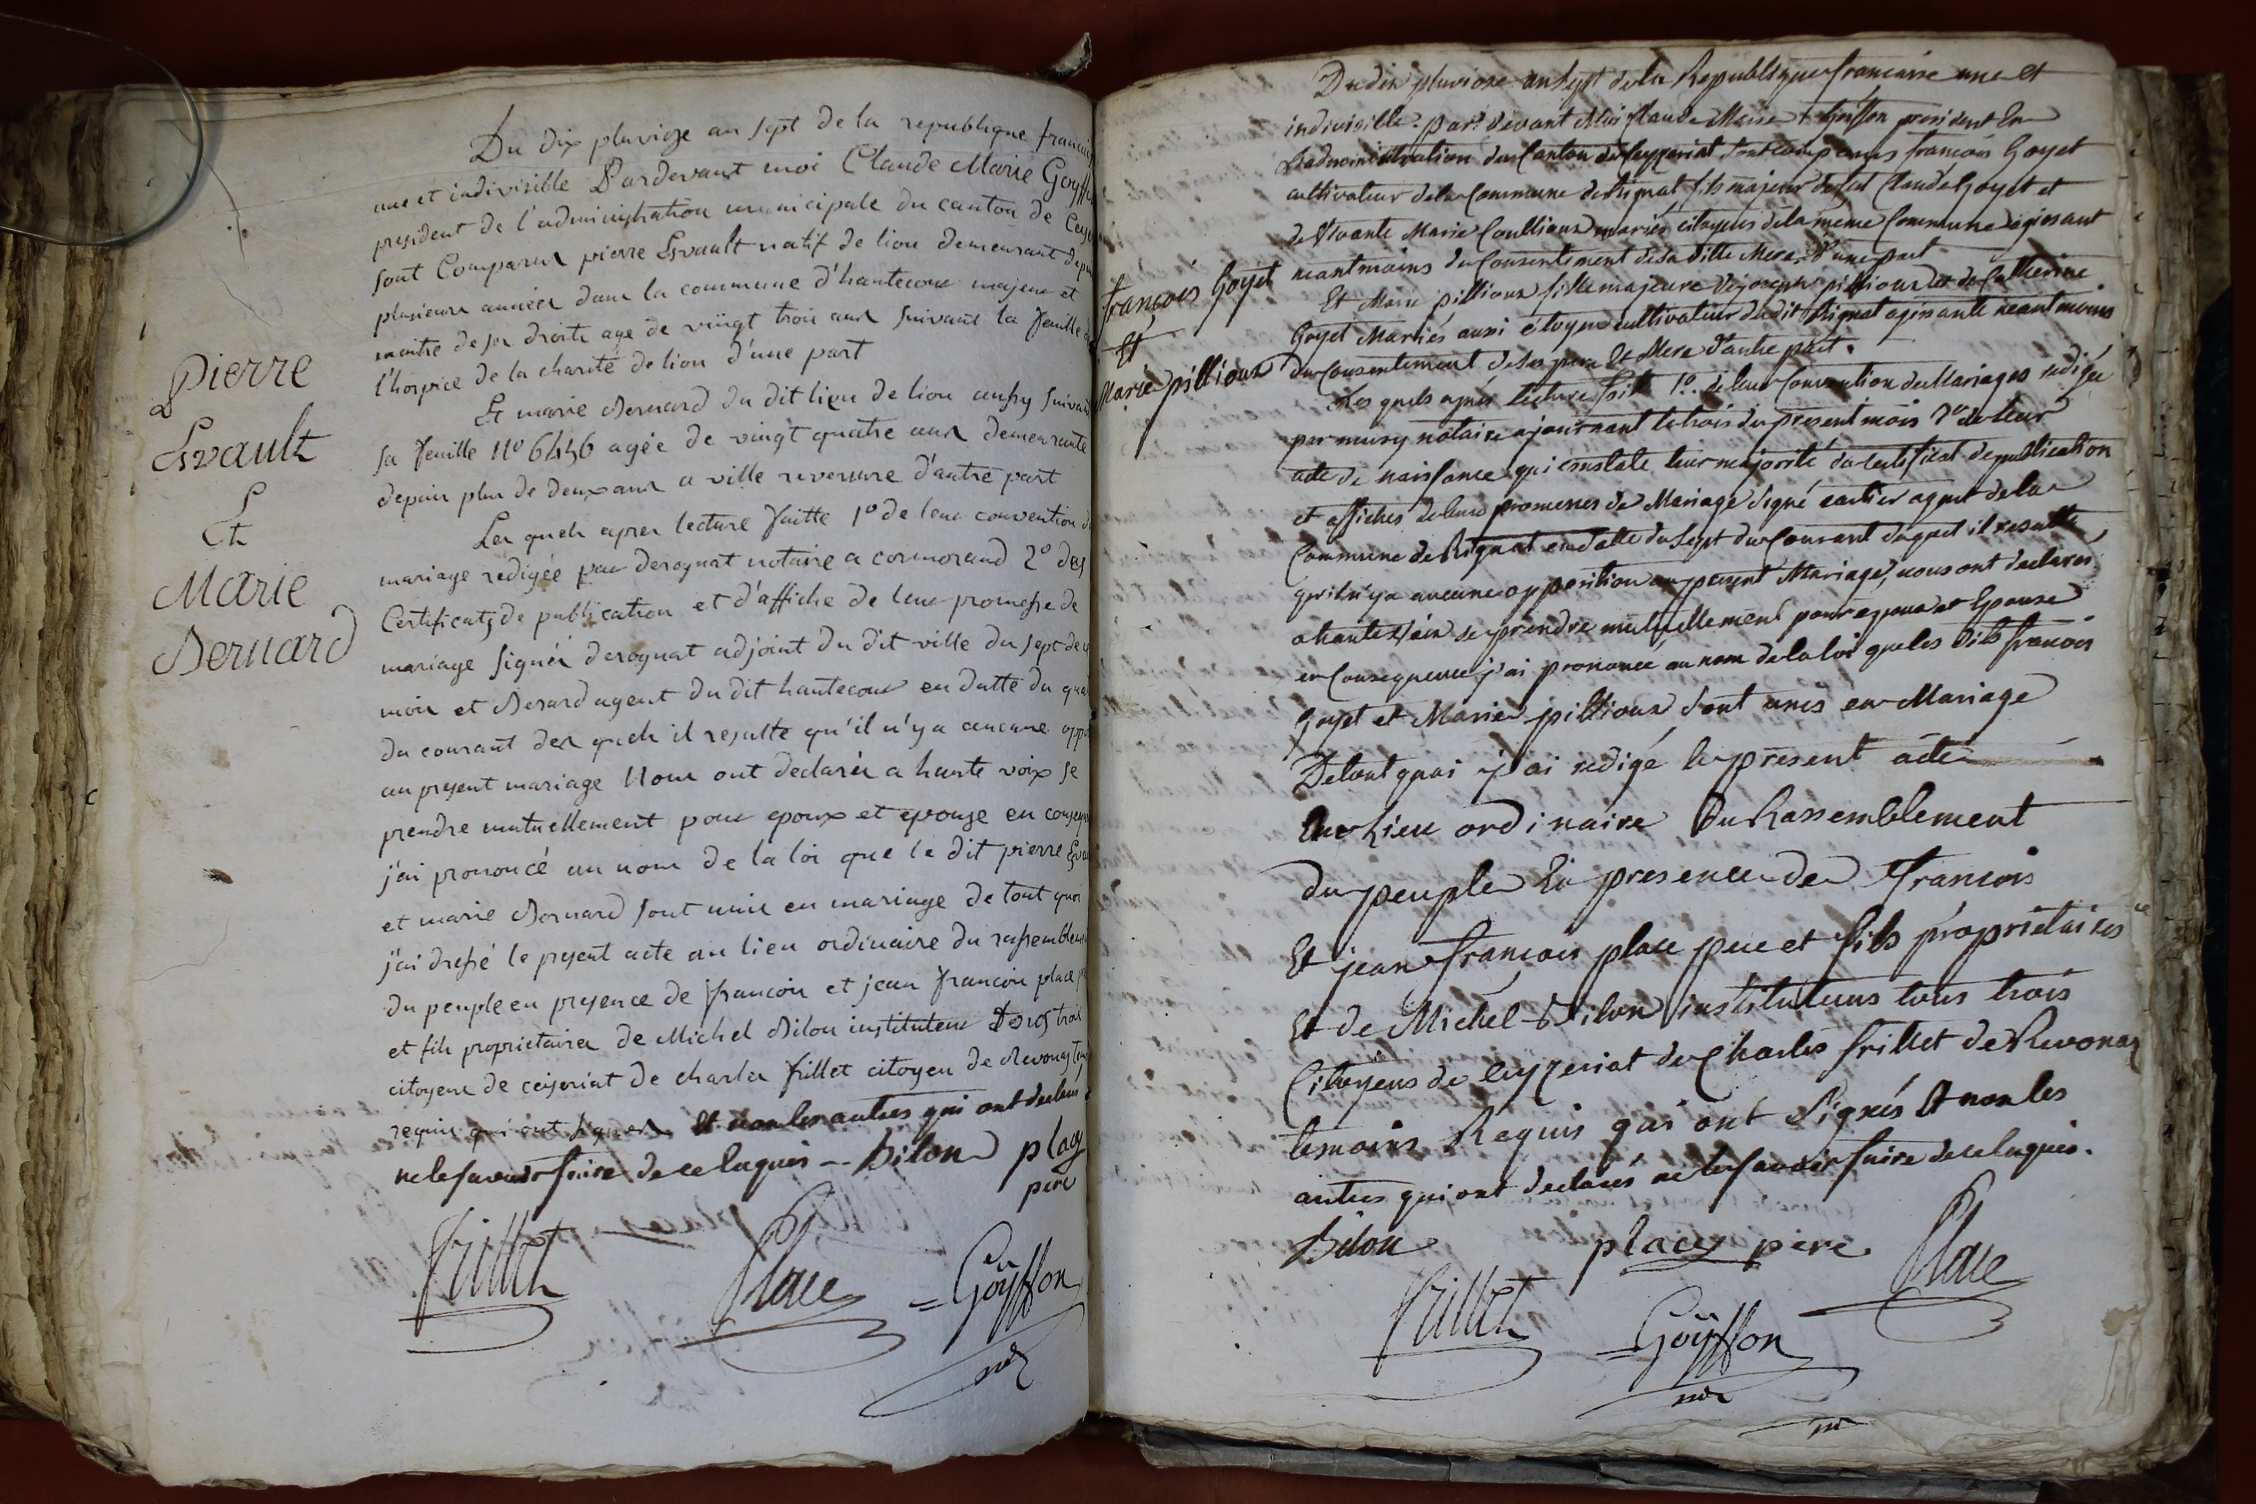 Pierre
Evault
Et
Marie
Bernard
Du dix pluviose an sept de la republique francais
une et indivisible Pardevant moi Claude Marie Goyff
president de l'administration municipale du canton de Ceys
sont Comparus pierre Evault natif de lion demeurant depui
plusieurs années dans la commune d'hautecour majeur et
maitre de ses droits age de vingt trois ans suivant la feuille de
l'hospice de la charité de lion d'une part
Et marie Bernard du dit lieu de lion aussy suivant
sa feuille N° 6456 agée de vingt quatre ans demeurante
depuis plus de deux ans a ville reversure d'autre part
Les quels apres lecture faitte 1° de leur convention de
mariage redigée par derognat notaire a cormorand 2° des
Certificats de publication et d'affiche de leur promesse de
mariage signés derognat adjoint du dit ville du sept de ce
mois et Berard agent du dit hautecour en datte du quat
du courant des quels il resulte qu'il n'y a aucune oppo
au present mariage Nous ont declarés a haute voix se
prendre mutuellement pour epoux et epouse en conseque
j'ai prononcé au nom de la loi que le dit pierre Eva
et marie Bernard sont unis en mariage de tout quoi
j'ai dressé le present acte au lieu ordinaire du rassemblem
du peuple en presence de francois et jean francois place p
et fils proprietaires de Michel Bilon instituteur tous trois
citoyens de ceyzeriat de charles frillet citoyen de Revonas tem
requis qui ont signés Et non les autres qui ont declarés
ne le savoir faire de ce Enquis - Bilon place
pere
frillet Place = Goÿffon
François Goyet
Et
Marie pillioux
Du dix pluviose an sept de la Republique francaise une et
indivisible. par devant Moi Claude Marie Goÿffon president En
L'administration du Canton de Ceyzeriat sont comparus francois Goyet
cultivateur de la Commune de Rignat fils majeur de feu Claude Goyet et
de Vivante Marie Coullioux mariés citoyens de la même Commune agissant
neantmoins du Consentement de sa ditte Mere, d'une part
Et Marie pillioux fille majeure de joseph pillioux et de Catherine
Goyet Mariés aussi citoyens cultivateurs du dit Rignat agissante neantmoins
du Consentement de ses pere Et Mere d'autre part.
Les quels après lecture faite 1°. de leur Convention de Mariages redigée
par morey notaire a journant le trois du present mois 2° de leur
acte de naissance qui constate leur majorité du certificat de publication
et affiches de leurs promesses de Mariage signé cartier agent de la
Commune de Rignat en datte du sept du Courant duquel il resulte
qu'il n'y a aucune opposition au present Mariage, nous ont declarés
a haute voix se prendre mutuellement pour epoux et Epouse
en Consequence j'ai prononcé au nom de la loi que les dits francois
Goyet et Marie pillioux sont unis en Mariage
De tout quoi j'ai redigé le present acte
Au Lieu ordinaire Du Rassemblement
du peuple En presence de francois
Et jean francois place pere et fils proprietaires
Et de Michel Bilon instituteurs tous trois
Citoyens de ceyzeriat de Charles frillet de Revonas
temoins Requis qui ont signés Et non les
autres qui ont declarés ne le savoir faire de ce Enquis.
Bilon place pere Place
frillet = Goÿffon